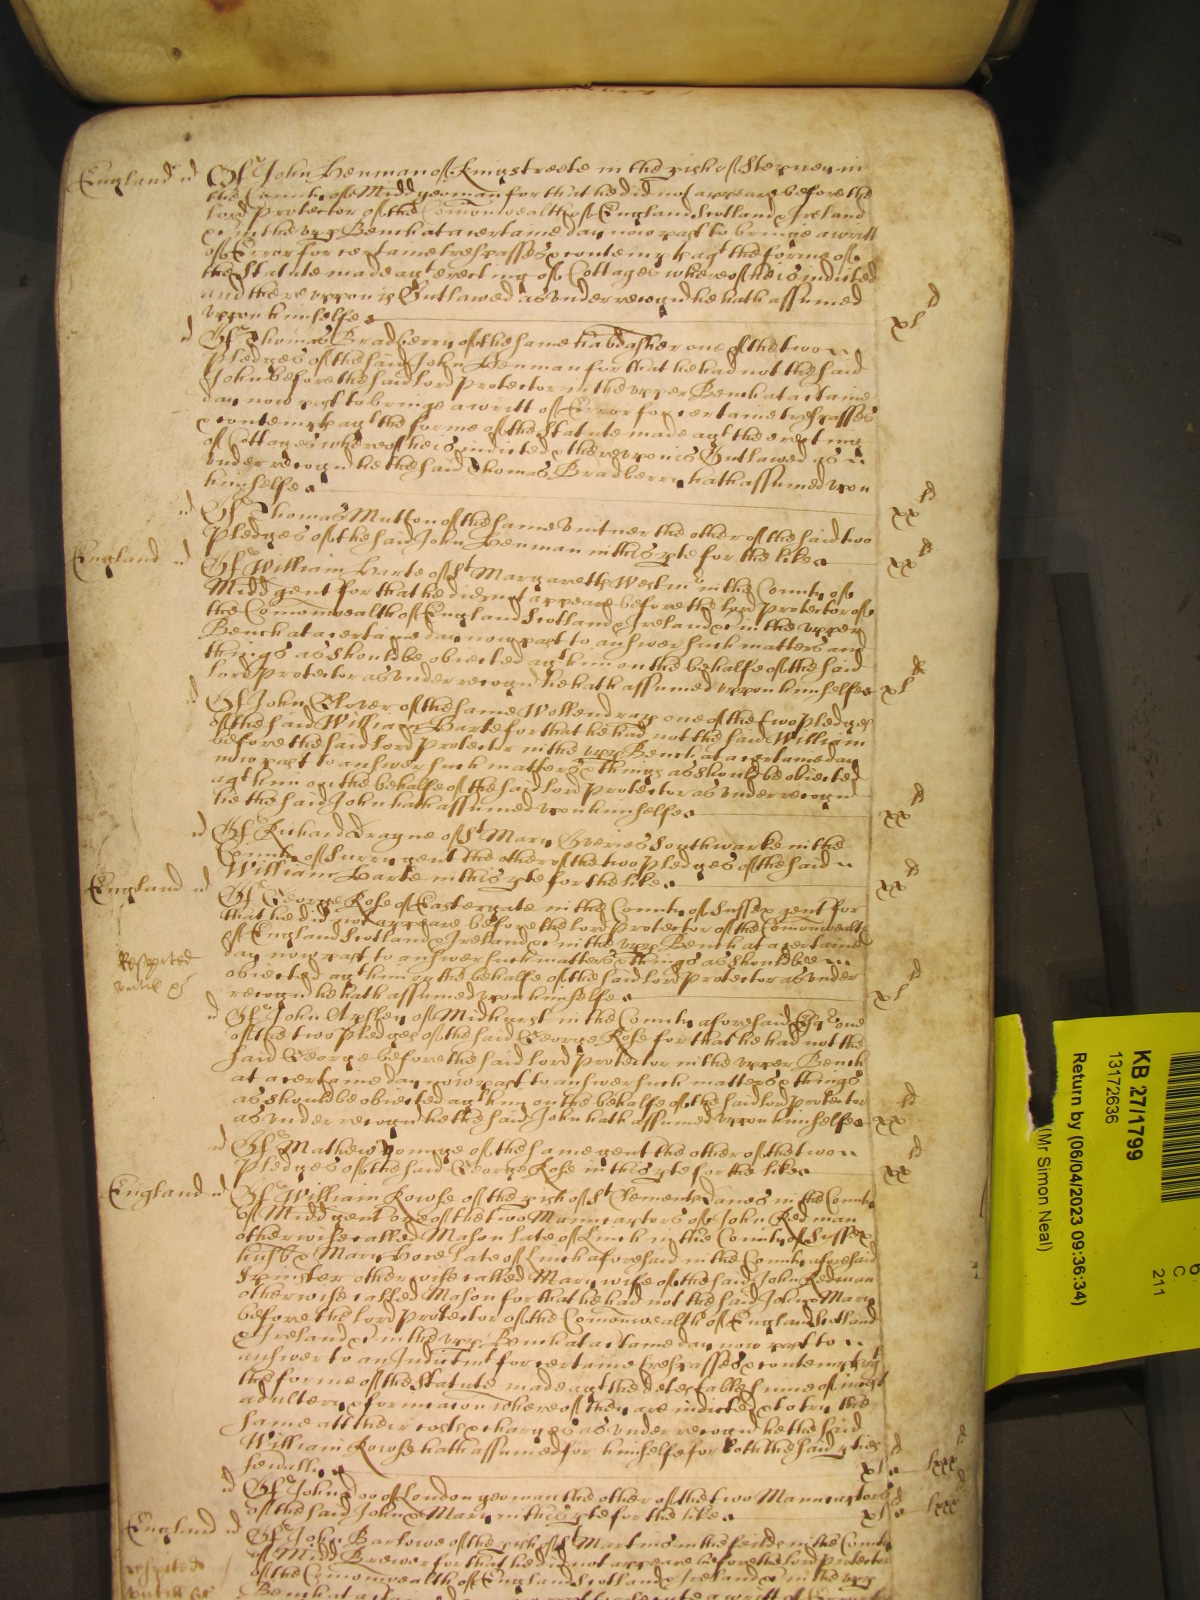 England Of John Henman of Kingstreete in the pish of Stepney in
the County of Midd yeoman for that he did not appeare before the
lord Protector of the Comonwealth of England Scotland & Ireland
&c in the upp Bench at a certaine day now past to bringe a writt
of Error for certaine trespasses & contempts agt the forme of
the Statute made agt erecting of Cottages whereof he is indicted
and thereuppon is Outlawed as under recogn he hath assumed
uppon himselfe xl li
Of Thomas Bradberry of the same habdasher one of the two
Pledges of the said John Henman for that he had not the said
John before the said lord Protector in the upper Bench at a certaine
day now past to bringe a writt of Error for certaine trespasses
& contempts agt the forme of the Statute made agt the erecting
of Cottages whereof he is indicted & thereupon is Outlawed as
under recogn he the said Thomas Bradberry hath assumed upon
himselfe xx li
Of Thomas Mutton of the same Vintner the other of the said two
Pledges of the said John Henman in this pte for the like xx li
England Of William Harte of St Margaretts Westmr in the County of
Midd gent for that he did not appeare before the lord Protector of
the Comonwealth of England Scotland & Ireland &c in the upper
Bench at a certaine day now past to answer such matters and
things as should be obiected agt him on the behalfe of the said
lord Protector as under recogn he hath assumed uppon himselfe xl li
Of John Glover of the same Wollendrap one of the two Pledges
of the said William Harte for that he had not the said William
before the said lord Protector in the upp Bench at a certaine day
now past to answer such matters & things as should be obiected
agt him on the behalfe of the said lord Protector as under recogn
he the said John hath assumed upon himselfe xx li
Of Richard Dragne of St Mary Overies Southwarke in the
County of Surry gent the other of the two Pledges of the said
William Harte in this pte for the like xx li
England Of George Rose of Eastergate in the County of Sussex gent for
that he did not appeare before the lord Protector of the Comonwealth
of England Scotland & Ireland &c in the upp Bench at a certaine
day now past to answer such matters & things as should bee
Respected
obiected agt him on the behalfe of the said lord Protector as under
untill
recogn he hath assumed upon himselfe xl li
Of John Apsley of Midhurst in the County aforesaid Esqr one
of the two Pledges of the said George Rose for that he had not the
said George before the said lord Protector in the upper Bench
at a certaine day now past to answer such matters & things
as should be obiected agt him on the behalfe of the said lord Protector
as under recogn he the said John hath assumed uppon himselfe xx li
Of Mathew Yonnge of the same gent the other of the two
Pledges of the said George Rose in this pte for the like xx li
England Of William Rowse of the pish of St Clements Danes in the County
of Midd gent one of the two Manucaptors of John Redman
otherwise called Mason late of Linch in the County of Sussex
husb & Mary Hore late of Linch aforesaid in the County aforesaid
Spinster otherwise called Mary wife of the said John Redman
otherwise called Mason for that he had not the said John & Mary
before the lord Protector of the Comonwealth of England Scotland
& Ireland &c in the upp Bench at a certaine day now past to
answer to an Indictmt for certaine trespasses & contempts agt
the forme of the Statute made agt the detestable sinne of incest
adultery & fornicacon whereof they are indicted & to try the
same att their costs & charges as under recogn he the said
William Rowse hath assumed for himselfe for both the said pties
sevally xl li lxxx li
Of John Doo of London yeoman the other of the two Manucaptors
of the said John & Mary in this pte for the like xl li lxxx li
England Of John Barlowe of the pish of St Martins in the feilds in the County
of Midd Brewer for that he did not appeare before the lord Protector
respited
of the Comonwealth of England Scotland & Ireland &c in the upp
untill
KB 27/1799
13172636
Return by (06/04/2023 09:36:34)
(Mr Simon Neal)
6
C.
211